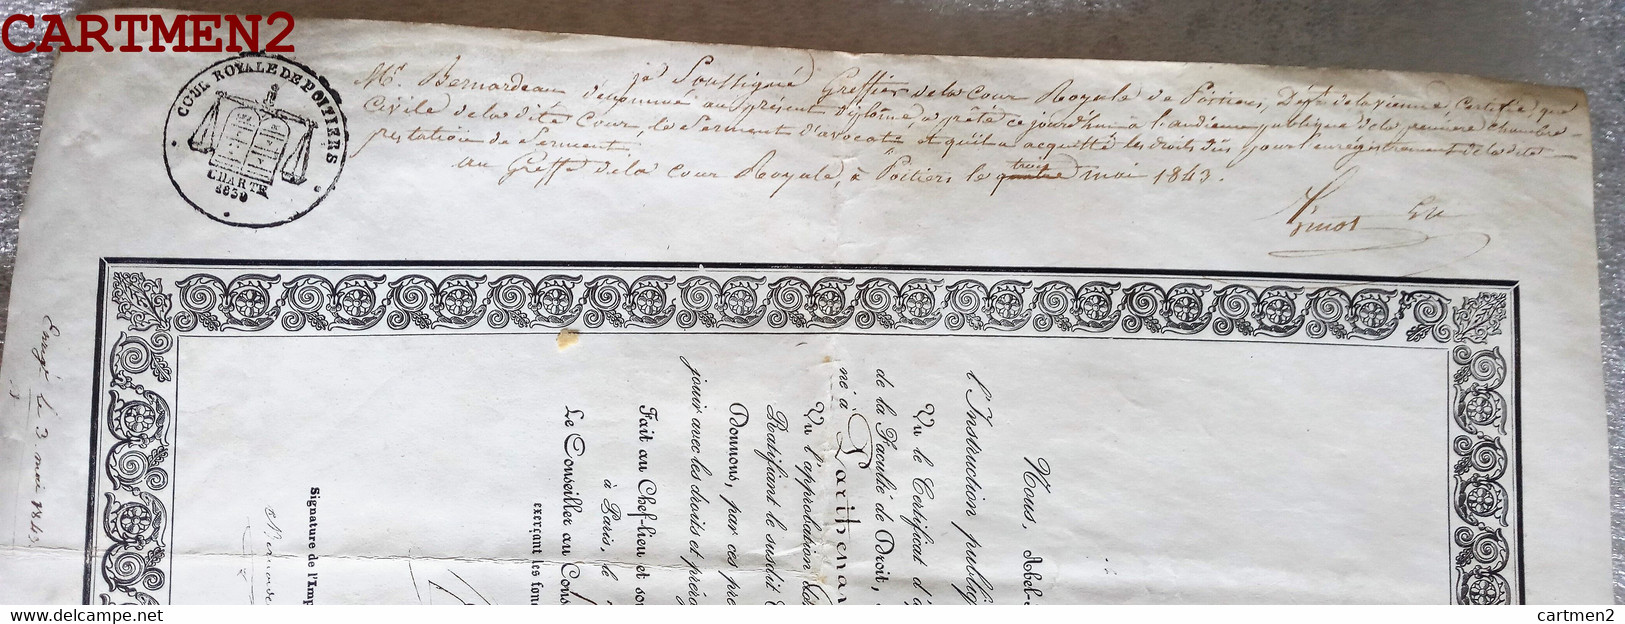 CARTMEN2
COUR ROYALE DE POITIERS
CHARTE
1830
je Soussigné Greffier de la Cour Royale de Poitiers, Dépt de la Vienne, Certifie que
Mr. Bernardeau dénommé au présent diplôme, a prêté ce jourd'hui à l'audience publique de la première chambre
Civile de la dite Cour, le Serment d'avocat, et qu'il a acquitté les droits dûs pour l'enregistrement de la dite
prestation de Serment
au Greffe de la Cour Royale, à Poitiers le quatre trois mai 1843.
Enregé le 3 mai 1843
Nous, Abel-
l'Instruction publiq
Vu le Certificat d'a
de la Faculté de Droit,
né à Parthenay
Vu l'approbation
Ratifiant le susdit C
Donnons, par ces pré
jouir avec les droits et préro
Fait au Chef-lieu et sou
à Paris, le
Le Conseiller au Cons
exerçant les fonc
Signature de l'Imp
delcampe.net
cartmen2